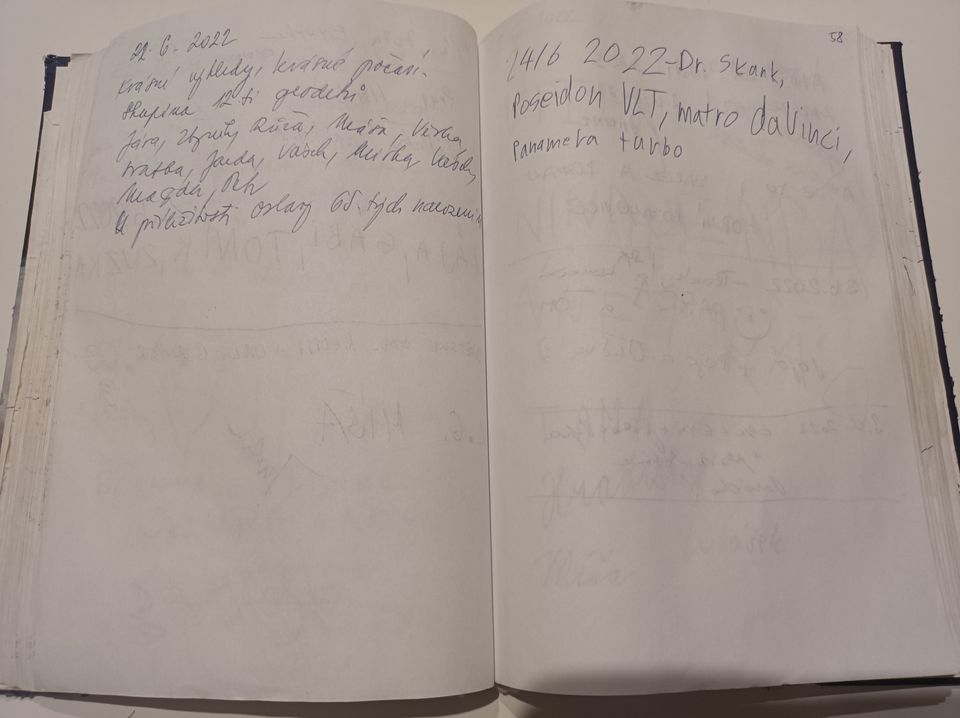 22. 6. 2022
Krásné výhledy, krásné počasí.
Skupina 12-ti geodetů
Jára, Zbyněk, Růža, Máňa, Věrka,
Jarda, Vašek, Mirka,
Magda, Petr
U příležitosti oslavy 65. tých narozenin
58
14/6 2022-Dr. Skank,
Poseidon VLT, matro daVinci,
panamera turbo